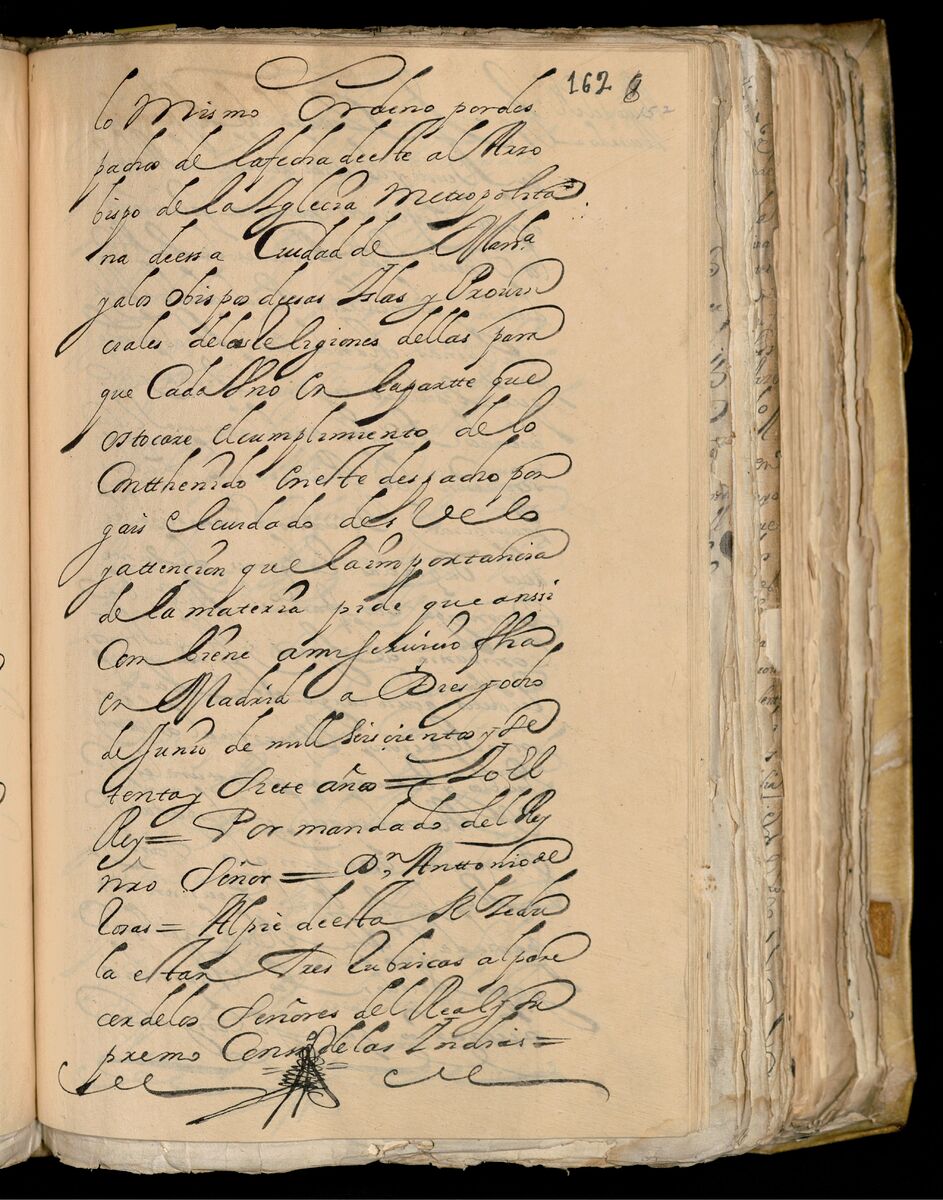 162 8
lo Mismo Ordeno por des
pacho de la fecha de este al Arzo
bispo de la Iglecia Metropolita
na de essa Ciudad de Manª
y alos Obispos de esas Islas y Provin
ciales delas Religiones dellas para
que Cada Uno en la partte que
os tocare el cumplimiento de lo
Contthenido en este despacho pon
gais el cuidado desvelo
y attencion que la importancia
de la materia pide que anssi
Combiene a mi servicio fha
en Madrid a Dies y ocho
de Junio de mill Seiscientos y Se
tenta y Siete años = Yo El
Rey = Por mandado del Rey
nrõ Señor = Dn Anttonio de
Rosas = Al pie de esta Rl Zedu
la estan Tres rubricas al pare
cer delos Señores del Real y Su
premo Consº delas Indias =